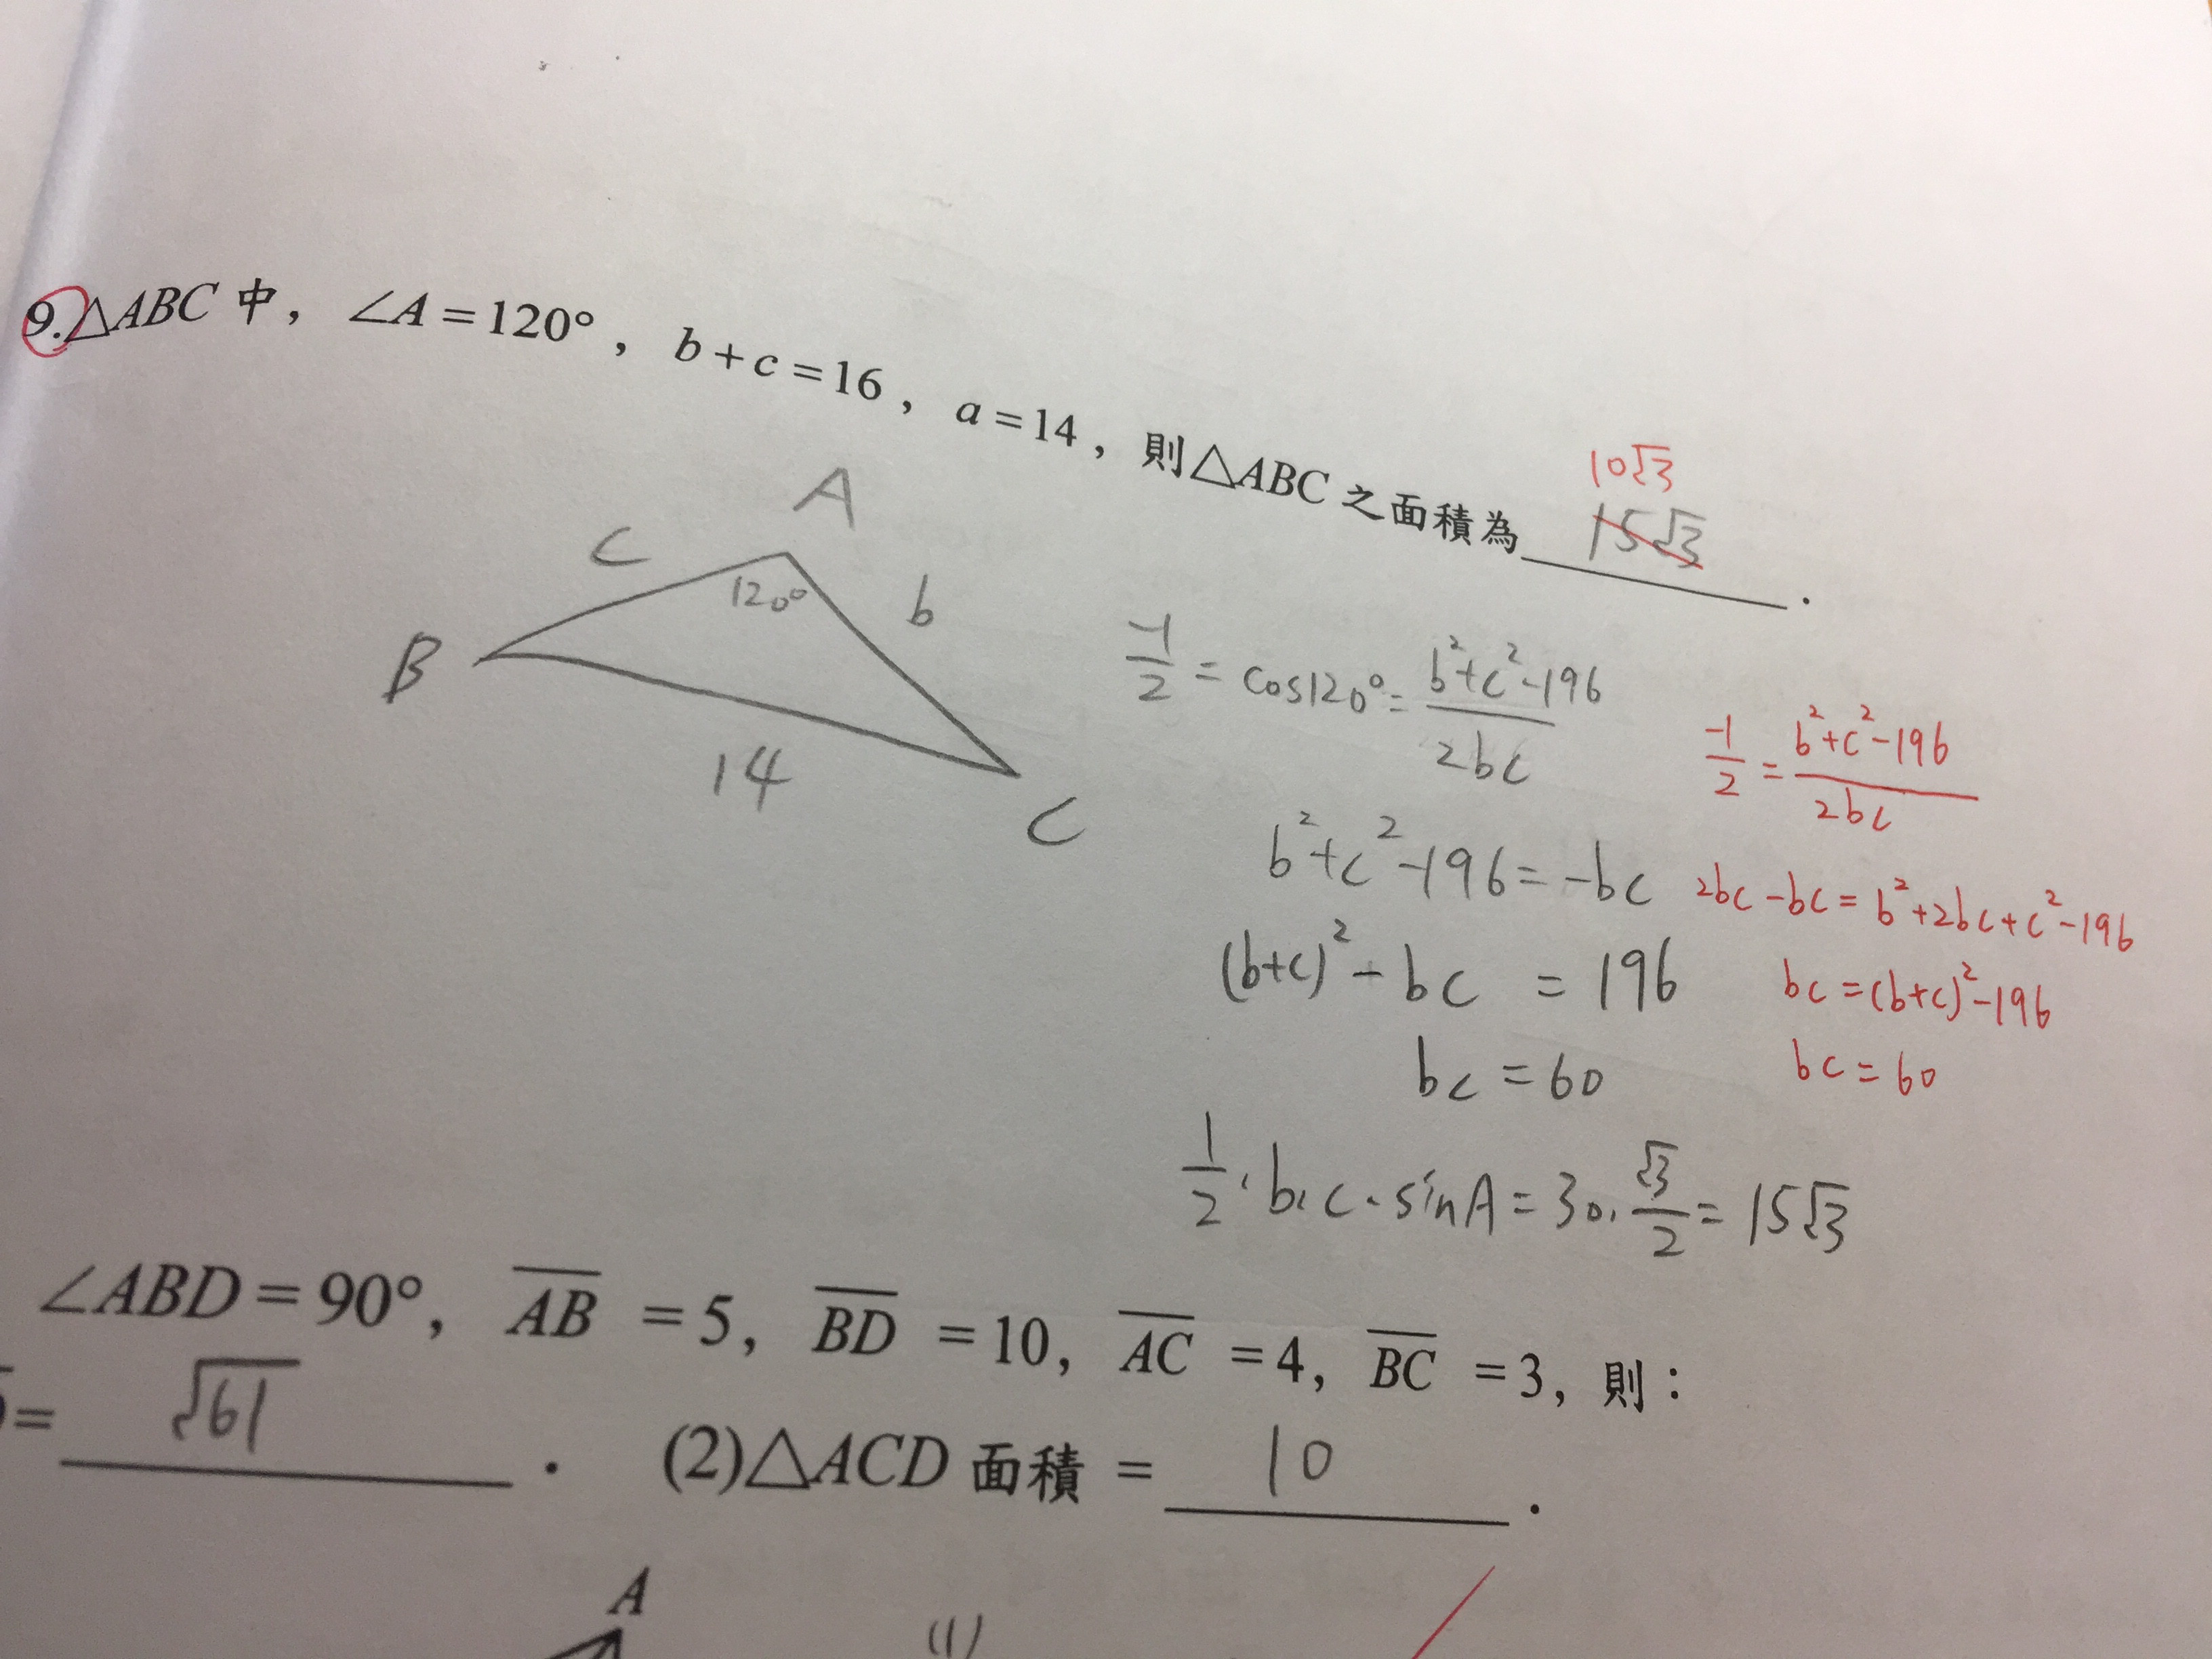 9.△ABC 中，∠A=120°，b+c=16，a=14，則△ABC 之面積為 15√3．
10√3
A
c
120°
b
B
14
C
-1/2 = cos120° = (b²+c²-196)/(2bc)
b²+c²-196=-bc
(b+c)²-bc = 196
bc = 60
1/2·b·c·sinA=30·√3/2=15√3
-1/2 = (b²+c²-196)/(2bc)
2bc-bc=b²+2bc+c²-196
bc=(b+c)²-196
bc=60
∠ABD=90°, AB̅ =5, BD̅ =10, AC̅ =4, BC̅ =3, 則：
= √61 ． (2)△ACD 面積 = 10 ．
A
(1)